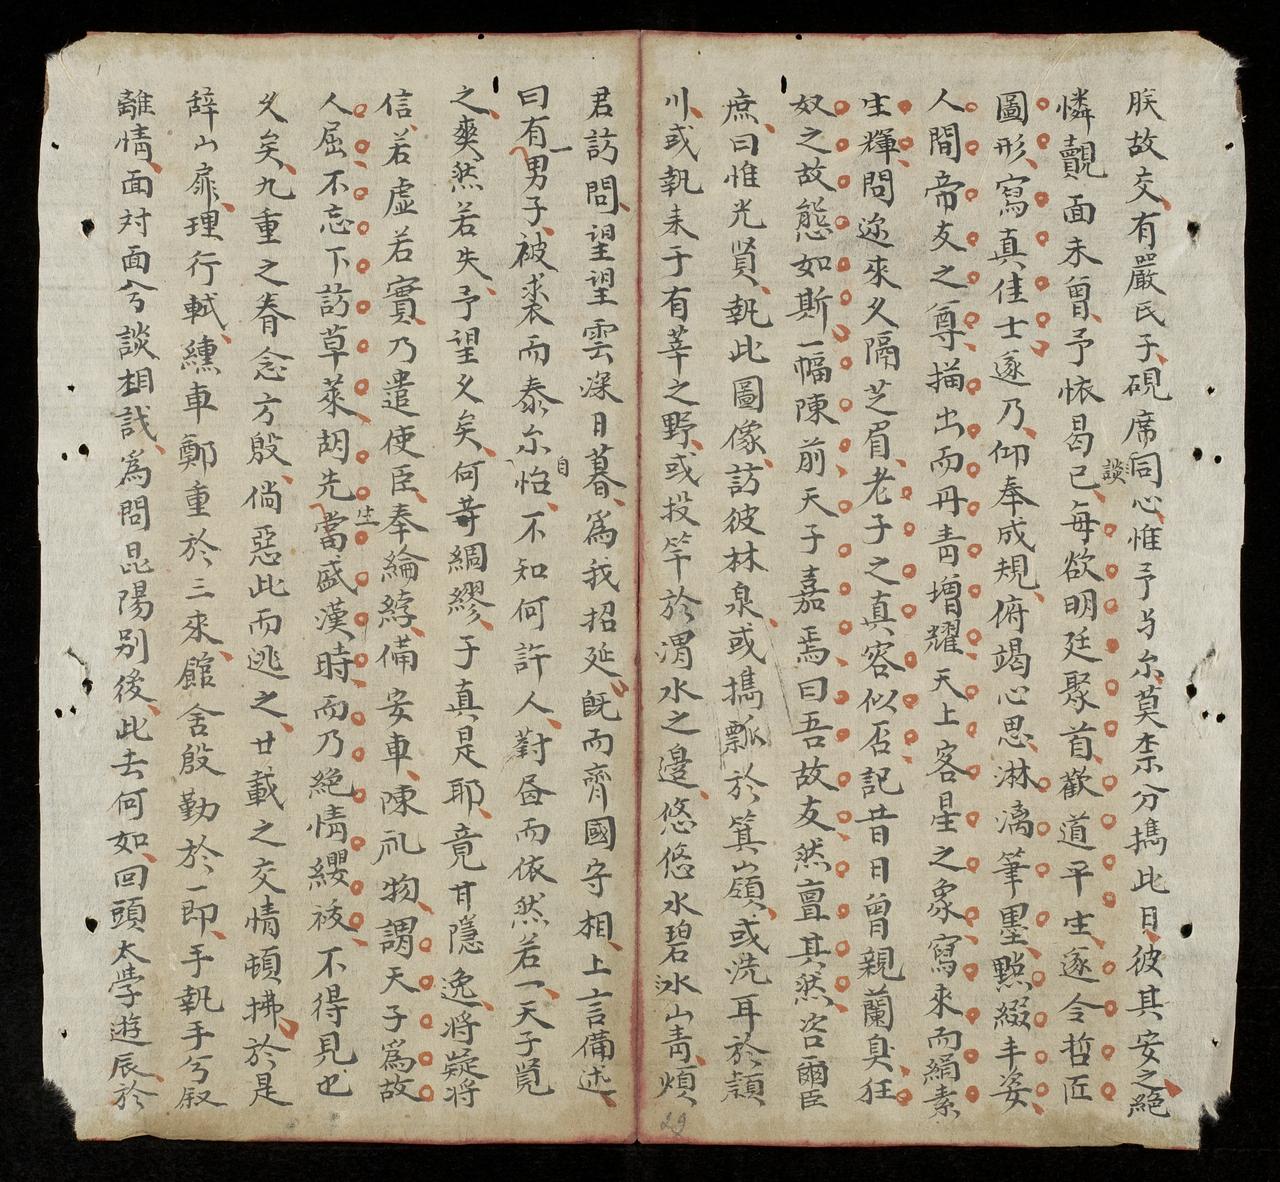 朕故交有嚴氏子硯席同心惟予与尔莫柰分攜此日彼其安之絕
憐覿面未曾予懷曷已談每欲明廷聚首歡道平生逐令哲匠
圖形寫真佳士逐乃仰奉成規俯竭心思淋漓筆墨㸃綴丰姿
人間帝友之尊描出而丹青增耀天上客星之象寫來而絹素
生輝問迩來久隔芝眉老子之真容似否記昔日曾親蘭臭狂
奴之故態如斯一幅陳前天子嘉焉曰吾故友然亶其然咨爾臣
庶曰惟光賢執此圖像訪彼林泉或攜瓢於箕嶺或洗耳於頴
川或執耒于有莘之野或投竿於渭水之邊悠悠水碧水山青煩
君訪問望望雲深日暮為我招延既而齊國守相上言備述
曰有一男子被裘而泰尔自怡不知何許人對畣而依然若一天子覧
之爽然若失予望久矣何苛綢繆子真是耶竟甘隱逸將疑將
信若虛若實乃遣使臣奉綸綍備安車陳礼物謂天子為故
人屈不忘下訪草萊胡先生當盛漢時而乃絕情纓祓不得見也
久矣九重之眷念方殷倘惡此而逃之廿載之交情頓拂於是
辞山扉理行軾纁車鄭重於三來館舍殷勤於一即手執手兮叙
離情面対面兮談相訧為問昆陽別後此去何如回頭太學遊辰於